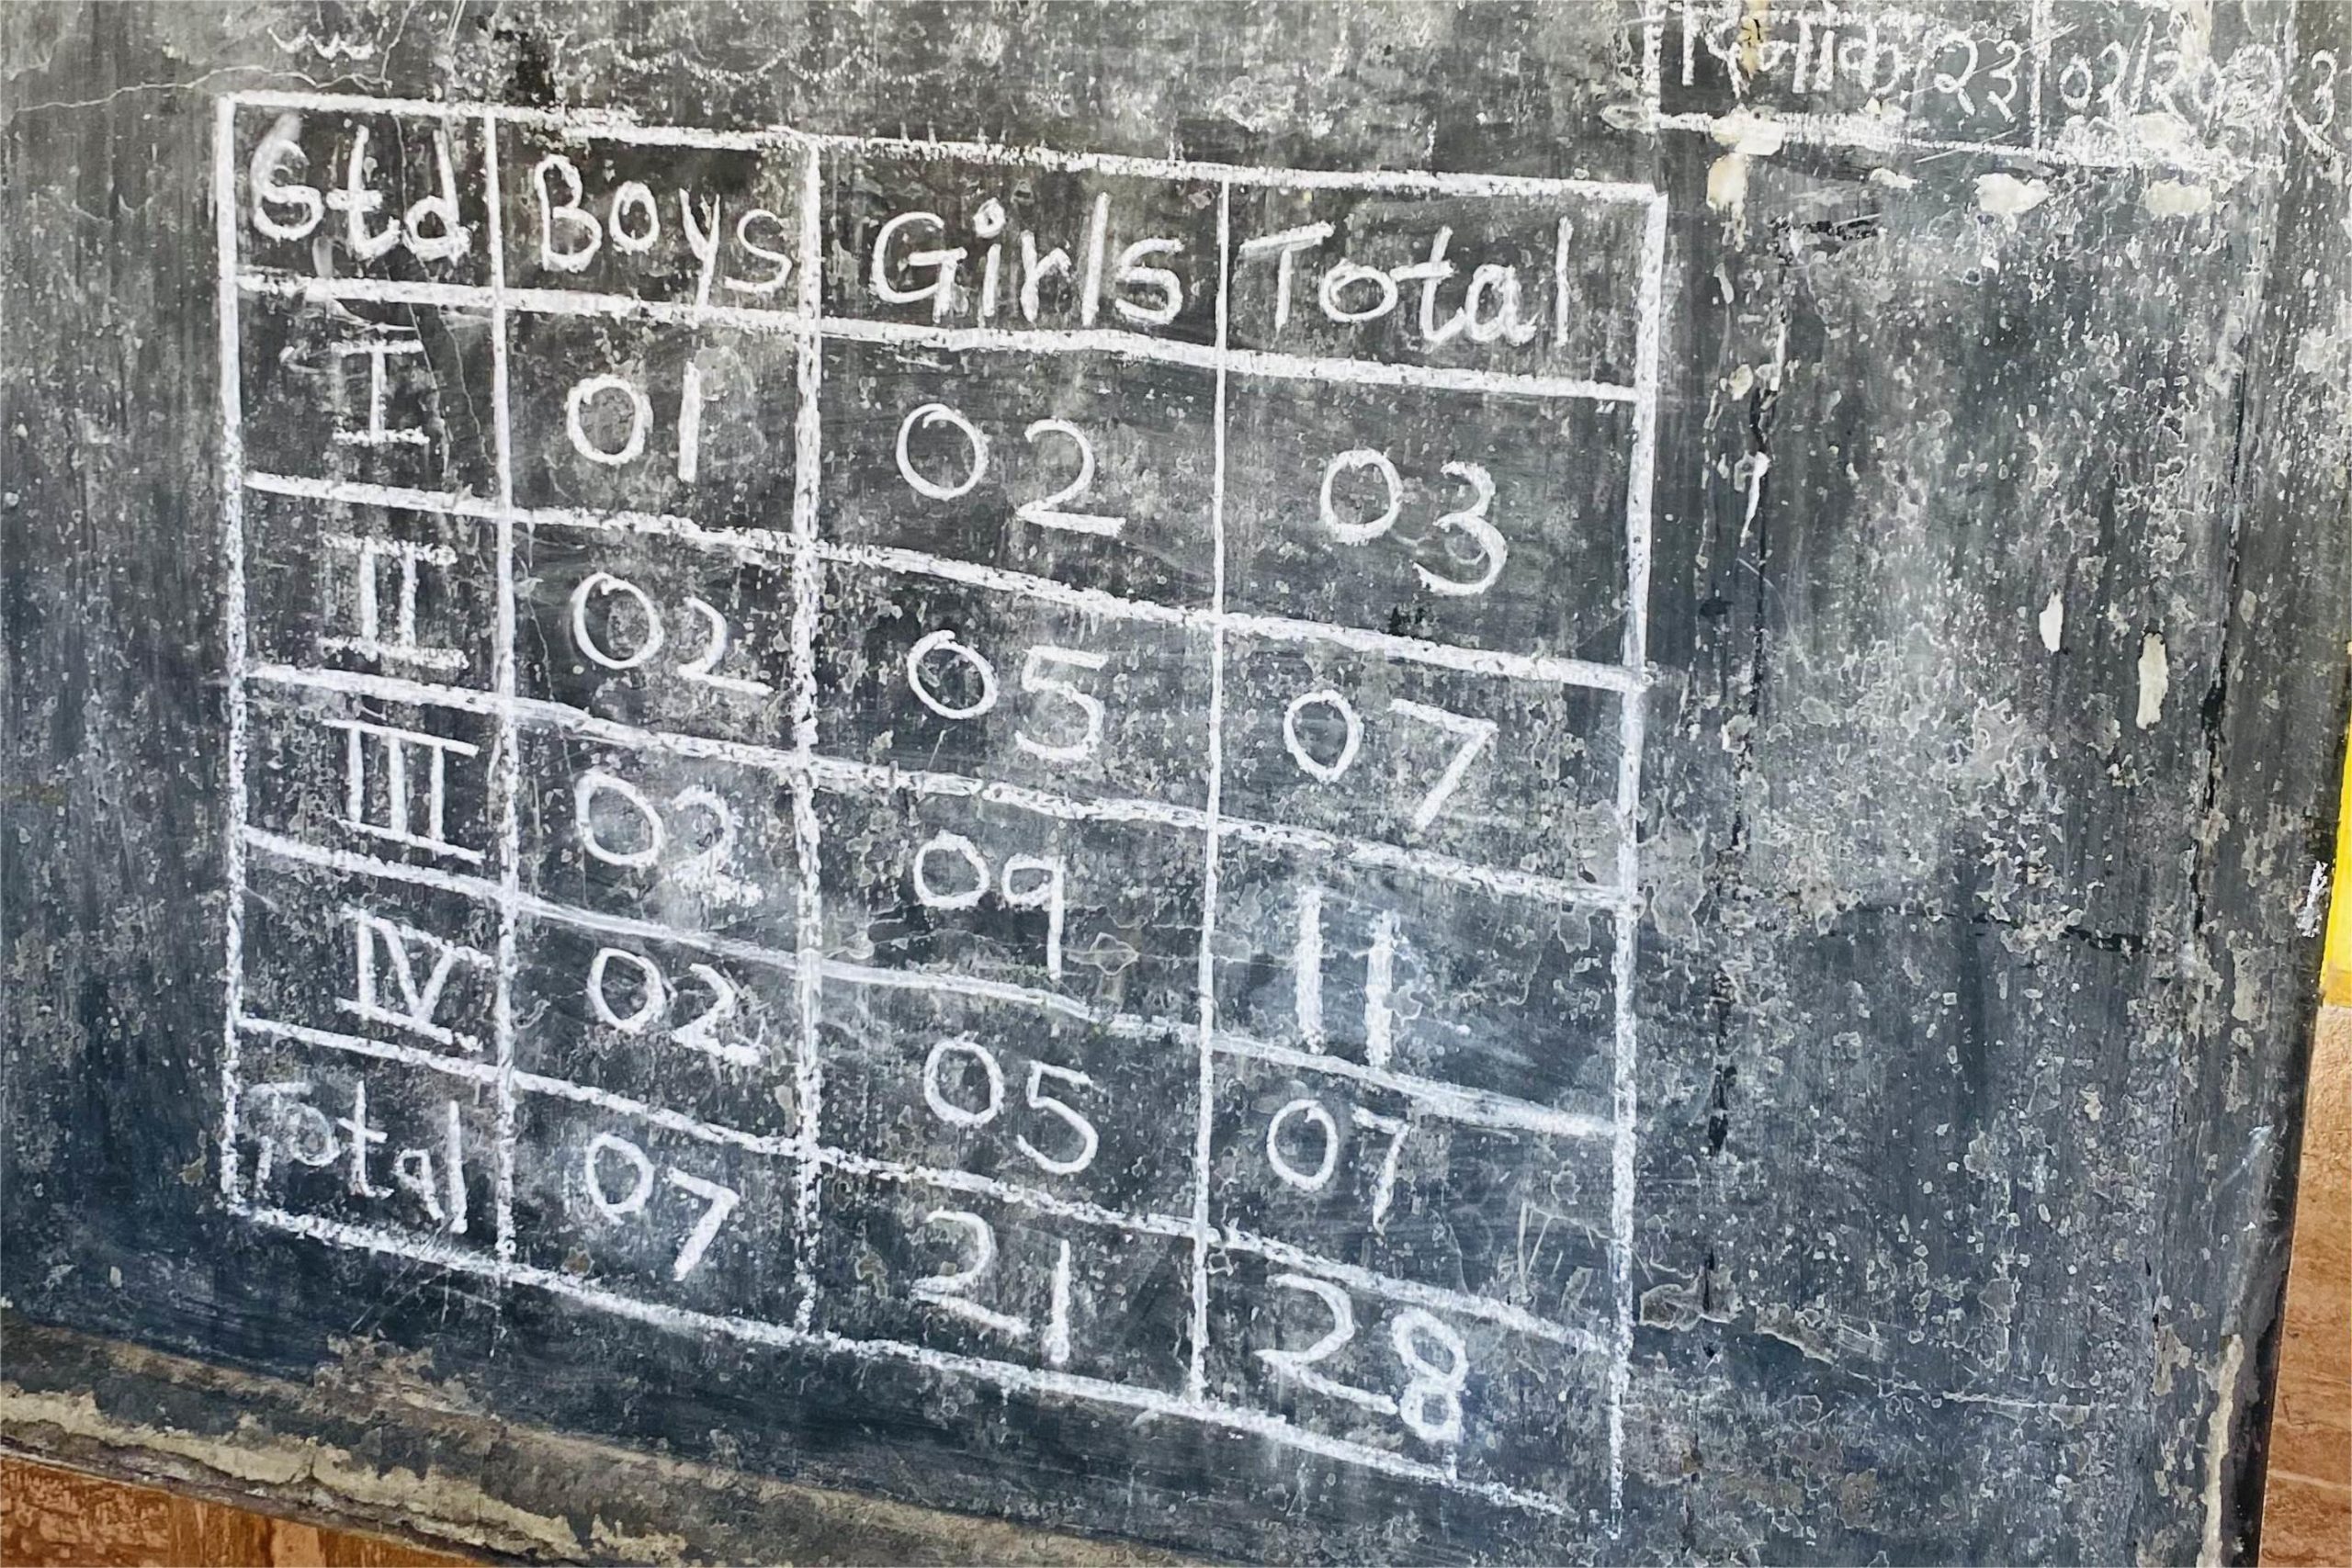 दिनांक २३/०२/२०२३
Std Boys Girls Total
I 01 02 03
II 02 05 07
III 02 09 11
IV 02 05 07
Total 07 21 28